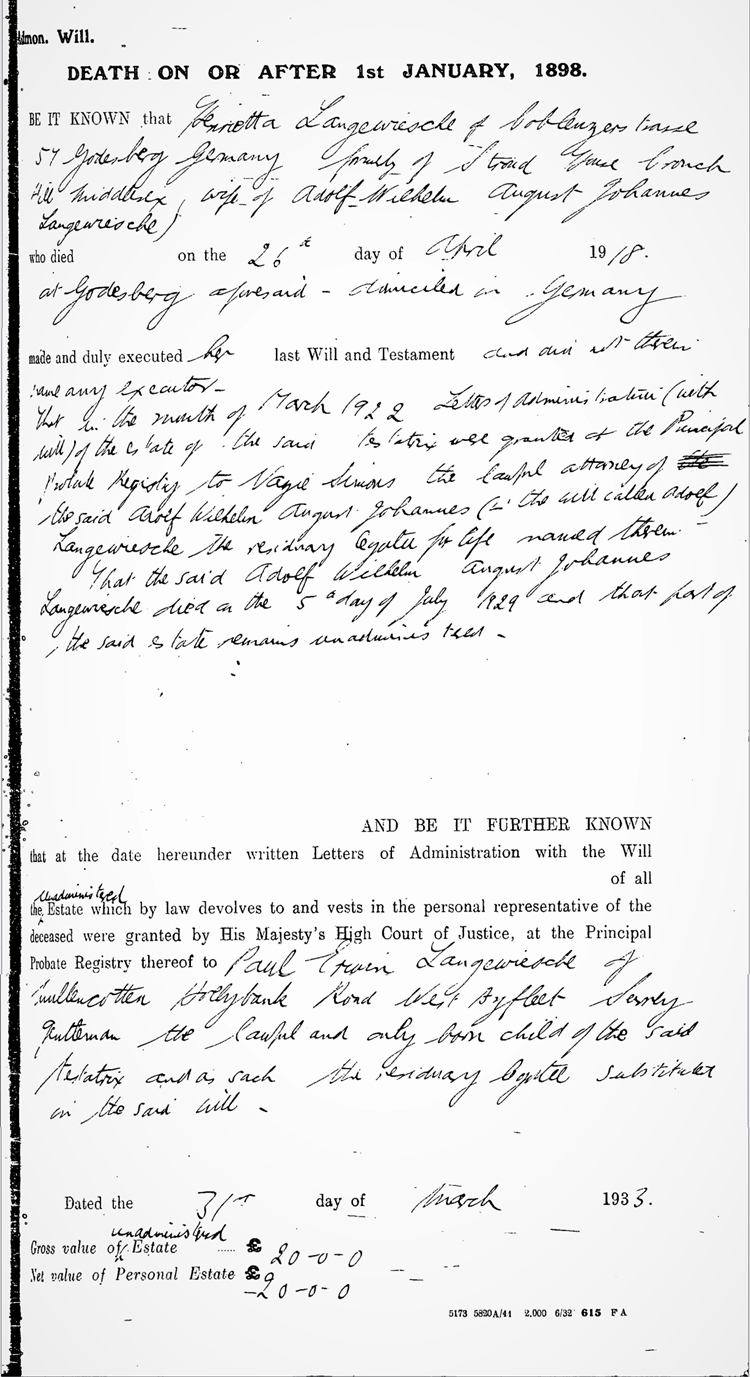 Admon. Will.
DEATH ON OR AFTER 1st JANUARY, 1898.
BE IT KNOWN that Henrietta Langewiesche of Coblenzerstrasse
57 Godesberg Germany formerly of Stroud House Crouch
Hill Middlesex, wife of Adolf Wilhelm August Johannes
Langewiesche)
who died on the 26th day of April 1918.
at Godesberg aforesaid - domiciled in Germany
made and duly executed her last Will and Testament and did not therein
name any executor -
That in the month of March 1922 Letters of Administration (with
will) of the estate of the said testatrix were granted at the Principal
Probate Registry to Simons the lawful attorney of the
the said Adolf Wilhelm August Johannes (in the will called Adolf)
Langewiesche the residuary legatee for life named therein -
That the said Adolf Wilhelm August Johannes
Langewiesche died on the 5th day of July 1929 and that part of
the said estate remains unadministered -
AND BE IT FURTHER KNOWN
that at the date hereunder written Letters of Administration with the Will
of all
unadministered
the Estate which by law devolves to and vests in the personal representative of the
deceased were granted by His Majesty's High Court of Justice, at the Principal
Probate Registry thereof to Paul Erwin Langewiesche of
Hollybank Road West Byfleet Surrey
Gentleman the lawful and only born child of the said
testatrix and as such the residuary legatee substituted
in the said will -
Dated the 31st day of March 1933.
unadministered
Gross value of Estate ...... £ 20-0-0
Net value of Personal Estate £
20-0-0
5173 5820A/44 2,000 6/32 615 F A